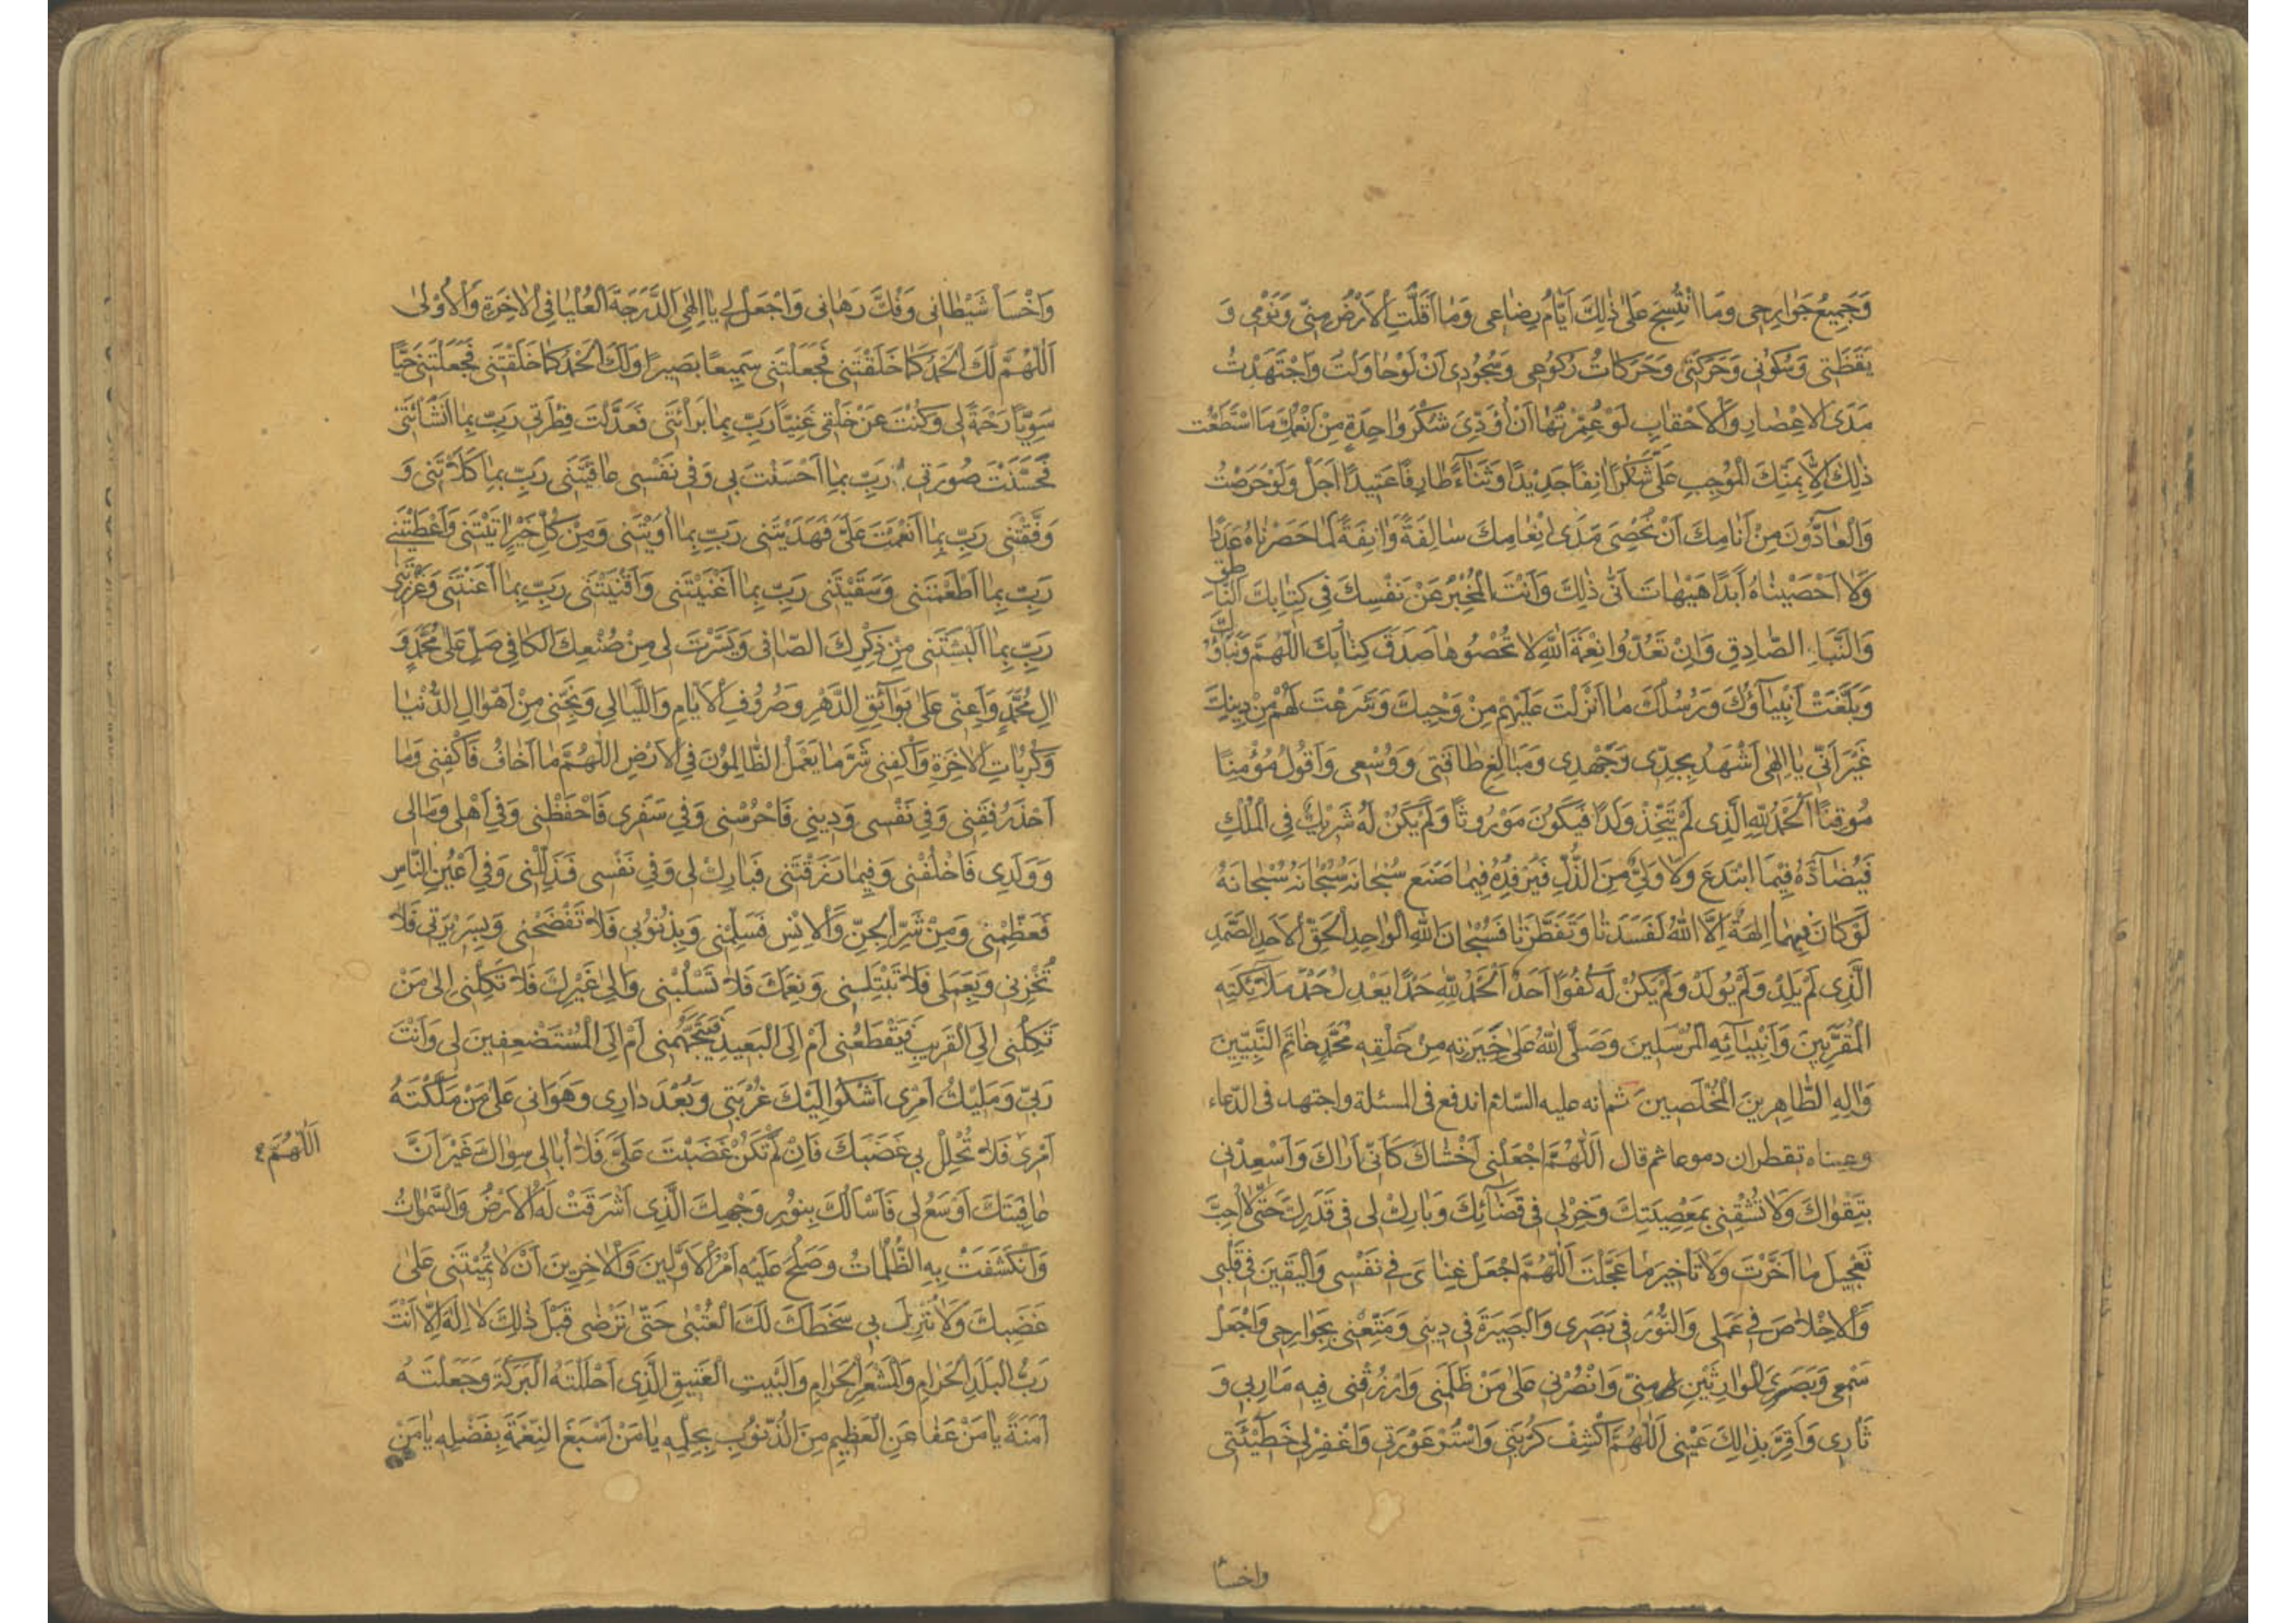 وَجَمِيعُ جَوٰارِحِى وَمَا انْتُسِجَ عَلىٰ ذٰلِكَ اَيّٰامُ رِضٰاعِى وَمٰا اَقَلَّتِ الْاَرْضُ مِنّى وَنَوْمِى وَ
يَقَظَتِى وَسُكُونِى وَحَرَكَتِى وَحَرَكٰاتُ رُكُوعِى وَسُجُودِى اَنْ لَوْحٰاوَلْتُ وَاجْتَهَدْتُ
مَدَى الْاَعْصٰارِ وَالْاَحْقٰابِ لَوْ عُمِّرْتُهٰا اَنْ اُؤَدِّىَ شُكْرَ وٰاحِدَةٍ مِنْ اَنْعُمِكَ مَا اسْتَطَعْتُ
ذٰلِكَ اِلّٰا بِمَنِّكَ الْمُوجِبِ عَلَىَّ شُكْرًا اٰنِفًا جَدِيْدًا وَثَنٰاءً طٰارِفًا عَتِيدًا اَجَلْ وَلَوْحَرَصْتُ
وَالْعٰادُّونَ مِنْ اَنٰامِكَ اَنْ نُحْصِىَ مَدىٰ اِنْعٰامِكَ سٰالِفَةً وَاٰنِفَةً لَمٰا حَصَرْنٰاهُ عَدَدًا
وَلٰا اَحْصَيْنٰاهُ اَبَدًا هَيْهٰاتَ اَنّٰى ذٰلِكَ وَاَنْتَ الْمُخْبِرُ عَنْ نَفْسِكَ فِى كِتٰابِكَ النّٰاطِقِ
وَالنَّبَاِ الصّٰادِقِ وَاِنْ تَعُدُّوا نِعْمَةَ اللهِ لٰا تُحْصُوهٰا صَدَقَ كِتٰابُكَ اللّٰهُمَّ وَنَبَاؤُكَ
وَبَلَّغَتْ اَنْبِيٰاؤُكَ وَرُسُلُكَ مٰا اَنْزَلْتَ عَلَيْهِمْ مِنْ وَحْيِكَ وَشَرَعْتَ لَهُمْ مِنْ دِينِكَ
غَيْرَ اَنّى يٰا اِلٰهِى اَشْهَدُ بِجِدّى وَجَهْدِى وَمَبَالِغِ طٰاقَتِى وَوُسْعِى وَاَقُولُ مُؤْمِنًا
مُوقِنًا اَلْحَمْدُ لِلّٰهِ الَّذِى لَمْ يَتَّخِذْ وَلَدًا فَيَكُونَ مَوْرُوثًا وَلَمْ يَكُنْ لَهُ شَرِيْكٌ فِى الْمُلْكِ
فَيُضٰادَّهُ فِيْمَا ابْتَدَعَ وَلٰا وَلِىٌّ مِنَ الذُّلِّ فَيُرْفِدَهُ فِيمٰا صَنَعَ سُبْحٰانَهُ سُبْحٰانَهُ سُبْحٰانَهُ
لَوْ كٰانَ فِيهِمٰا اٰلِهَةٌ اِلَّا اللهُ لَفَسَدَتٰا وَتَفَطَّرَتٰا فَسُبْحٰانَ اللهِ الْوٰاحِدِ الْحَقِّ الْاَحَدِ الصَّمَدِ
الَّذِى لَمْ يَلِدْ وَلَمْ يُولَدْ وَلَمْ يَكُنْ لَهُ كُفُوًا اَحَدٌ اَلْحَمْدُ لِلّٰهِ حَمْدًا يَعْدِلُ حَمْدَ مَلٰائِكَتِهِ
الْمُقَرَّبِينَ وَاَنْبِيٰائِهِ الْمُرْسَلِينَ وَصَلَّى اللهُ عَلىٰ خِيَرَتِهِ مِنْ خَلْقِهِ مُحَمَّدٍ خٰاتَمِ النَّبِيّينَ
وَاٰلِهِ الطّٰاهِرِينَ الْمُخْلَصِينَ ثم انه عليه السّلام اندفع فى المسئلة واجتهد فى الدّعاء
وعيناه تقطران دموعا ثم قال اَللّٰهُمَّ اجْعَلْنِى اَخْشٰاكَ كَاَنّى اَرٰاكَ وَاَسْعِدْنِى
بِتَقْوٰاكَ وَلٰا تُشْقِنِى بِمَعْصِيَتِكَ وَخِرْلِى فِى قَضٰائِكَ وَبٰارِكْ لِى فِى قَدَرِكَ حَتّٰى لٰا اُحِبَّ
تَعْجِيلَ مٰا اَخَّرْتَ وَلٰا تَاْخِيرَ مٰا عَجَّلْتَ اَللّٰهُمَّ اجْعَلْ غِنٰاىَ فِى نَفْسِى وَالْيَقِينَ فِى قَلْبِى
وَالْاِخْلٰاصَ فِى عَمَلِى وَالنُّورَ فِى بَصَرِى وَالْبَصِيرَةَ فِى دِينِى وَمَتِّعْنِى بِجَوٰارِحِى وَاجْعَلْ
سَمْعِى وَبَصَرِىَ الْوٰارِثَيْنِ مِنّى وَانْصُرْنِى عَلىٰ مَنْ ظَلَمَنِى وَارْزُقْنِى فِيهِ مَاٰرِبِى وَ
ثٰارِى وَاَقِرَّ بِذٰلِكَ عَيْنِى اَللّٰهُمَّ اكْشِفْ كُرْبَتِى وَاسْتُرْ عَوْرَتِى وَاغْفِرْلِى خَطِيْئَتِى
واخسأ
وَاخْسَأْ شَيْطٰانِى وَفُكَّ رِهٰانِى وَاجْعَلْ لِى يٰا اِلٰهِى الدَّرَجَةَ الْعُلْيٰا فِى الْاٰخِرَةِ وَالْاُوْلىٰ
اَللّٰهُمَّ لَكَ الْحَمْدُ كَمٰا خَلَقْتَنِى فَجَعَلْتَنِى سَمِيعًا بَصِيرًا وَلَكَ الْحَمْدُ كَمٰا خَلَقْتَنِى فَجَعَلْتَنِى حَيًّا
سَوِيًّا رَحْمَةً لِى وَكُنْتَ عَنْ خَلْقِى غَنِيًّا رَبِّ بِمٰا بَرَأْتَنِى فَعَدَّلْتَ فِطْرَتِى رَبِّ بِمٰا اَنْشَاْتَنِى
فَحَسَّنْتَ صُورَتِى رَبِّ بِمٰا اَحْسَنْتَ بِى وَفِى نَفْسِى عٰافَيْتَنِى رَبِّ بِمٰا كَلَأْتَنِى وَ
وَفَّقْتَنِى رَبِّ بِمٰا اَنْعَمْتَ عَلَىَّ فَهَدَيْتَنِى رَبِّ بِمٰا اٰوَيْتَنِى وَمِنْ كُلِّ خَيْرٍ اٰتَيْتَنِى وَاَعْطَيْتَنِى
رَبِّ بِمٰا اَطْعَمْتَنِى وَسَقَيْتَنِى رَبِّ بِمٰا اَغْنَيْتَنِى وَاَقْنَيْتَنِى رَبِّ بِمٰا اَعَنْتَنِى وَعَزَّزْتَنِى
رَبِّ بِمٰا اَلْبَسْتَنِى مِنْ ذِكْرِكَ الصّٰافِى وَيَسَّرْتَ لِى مِنْ صُنْعِكَ الْكٰافِى صَلِّ عَلىٰ مُحَمَّدٍ وَ
اٰلِ مُحَمَّدٍ وَاَعِنّى عَلىٰ بَوٰائِقِ الدَّهْرِ وَصُرُوفِ الْاَيّٰامِ وَاللَّيٰالِى وَنَجِّنِى مِنْ اَهْوٰالِ الدُّنْيٰا
وَكُرُبٰاتِ الْاٰخِرَةِ وَاكْفِنِى شَرَّ مٰا يَعْمَلُ الظّٰالِمُوْنَ فِى الْاَرْضِ اَللّٰهُمَّ مٰا اَخٰافُ فَاكْفِنِى وَمٰا
اَحْذَرُ فَقِنِى وَفِى نَفْسِى وَدِينِى فَاحْرُسْنِى وَفِى سَفَرِى فَاحْفَظْنِى وَفِى اَهْلِى وَمٰالِى
وَوَلَدِى فَاخْلُفْنِى وَفِيمٰا رَزَقْتَنِى فَبٰارِكْ لِى وَفِى نَفْسِى فَذَلِّلْنِى وَفِى اَعْيُنِ النّٰاسِ
فَعَظِّمْنِى وَمِنْ شَرِّ الْجِنِّ وَالْاِنْسِ فَسَلِّمْنِى وَبِذُنُوبِى فَلٰا تَفْضَحْنِى وَبِسَرِيْرَتِى فَلٰا
تُخْزِنِى وَبِعَمَلِى فَلٰا تَبْتَلِنِى وَنِعَمَكَ فَلٰا تَسْلُبْنِى وَاِلىٰ غَيْرِكَ فَلٰا تَكِلْنِى اِلىٰ مَنْ
تَكِلُنِى اِلَى الْقَرِيبِ فَيَقْطَعُنِى اَمْ اِلَى الْبَعِيدِ فَيَتَجَهَّمُنِى اَمْ اِلَى الْمُسْتَضْعِفِينَ لِى وَاَنْتَ
رَبّى وَمَلِيْكُ اَمْرِى اَشْكُو اِلَيْكَ غُرْبَتِى وَبُعْدَ دٰارِى وَهَوَانِى عَلىٰ مَنْ مَلَّكْتَهُ
اَمْرِى فَلٰا تُحْلِلْ بِى غَضَبَكَ فَاِنْ لَمْ تَكُنْ غَضِبْتَ عَلَىَّ فَلٰا اُبٰالِى سِوٰاكَ غَيْرَ اَنَّ
اَللّٰهُمَّ
عٰافِيَتَكَ اَوْسَعُ لِى فَاَسْاَلُكَ بِنُورِ وَجْهِكَ الَّذِى اَشْرَقَتْ لَهُ الْاَرْضُ وَالسَّمٰوٰاتُ
وَانْكَشَفَتْ بِهِ الظُّلُمٰاتُ وَصَلُحَ عَلَيْهِ اَمْرُ الْاَوَّلِينَ وَالْاٰخِرِينَ اَنْ لٰا تُمِيْتَنِى عَلىٰ
غَضَبِكَ وَلٰا تُنْزِلَ بِى سَخَطَكَ لَكَ الْعُتْبىٰ حَتّٰى تَرْضٰى قَبْلَ ذٰلِكَ لٰا اِلٰهَ اِلّٰا اَنْتَ
رَبَّ الْبَلَدِ الْحَرٰامِ وَالْمَشْعَرِ الْحَرٰامِ وَالْبَيْتِ الْعَتِيقِ الَّذِى اَحْلَلْتَهُ الْبَرَكَةَ وَجَعَلْتَهُ
اَمَنَةً يٰا مَنْ عَفٰا عَنِ الْعَظِيمِ مِنَ الذُّنُوبِ بِحِلْمِهِ يٰا مَنْ اَسْبَغَ النِّعْمَةَ بِفَضْلِهِ يٰا مَنْ